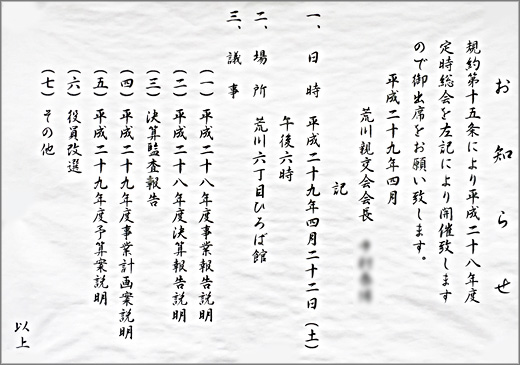 お知らせ
規約第十五条により平成二十八年度
定時総会を左記により開催致します
ので御出席をお願い致します。
平成二十九年四月
荒川親交会会長
記
一、日 時 平成二十九年四月二十二日(土)
午後六時
二、場 所 荒川六丁目ひろば館
三、議 事
(一)平成二十八年度事業報告説明
(二)平成二十八年度決算報告説明
(三)決算監査報告
(四)平成二十九年度事業計画案説明
(五)平成二十九年度予算案説明
(六)役員改選
(七)その他
以上